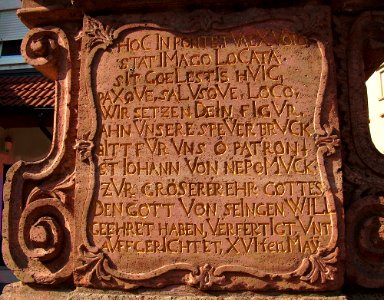 HOC IN PONTE
STAT IMAGO LOCATA
SIT COELESTIS HUIC,
PAXQVE, SALUSQVE, LOCO,
WIR SETZEN DEIN FIGVR
AHN VNSERE SPEYER BRVCK
BITT FVR VNS O PATRON
ST IOHANN VON NEPOMVCK
ZVR GRÖSERER EHR GOTTES
DEN GOTT VON SEINGEN WILL
GEEHRET HABEN, VERFERTIGT, VNT
AVFFGERICHTET, XVI ten MAY